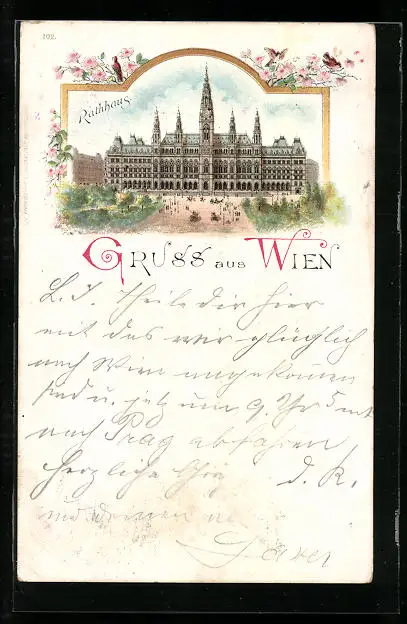 102.
Rathhaus
GRUSS aus WIEN
L. J. Theile dir hier
mit das wir glüglich
nach Wien angekomen
sind u. jetz um 9 Uhr 5 mt
nach Prag abfahren
Herzliche D. K.
und